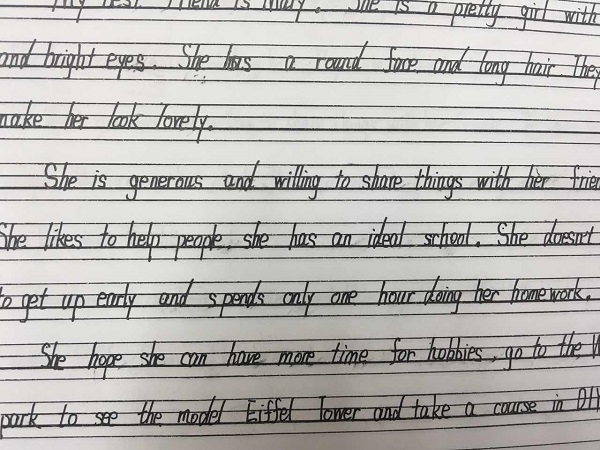 My best friend is Mary. She is a pretty girl with
and bright eyes. She has a round face and long hair They
make her look lovely.
She is generous and willing to share things with her
She likes to help people she has an ideal school. She doesn't
to get up early and spends only one hour doing her homework.
She hope she can have more time for hobbies, go to the
park to see the model Eiffel Tower and take a course in